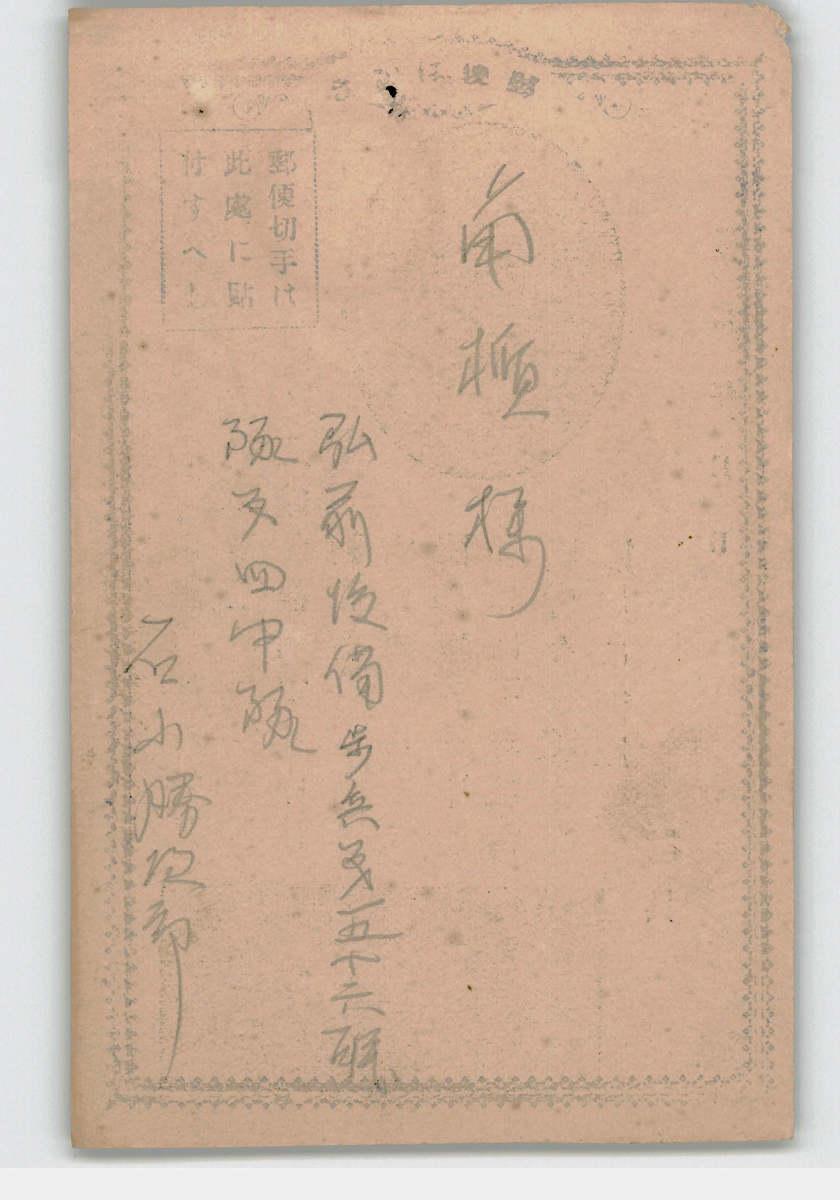 郵便はがき
郵便切手は
此處に貼
付すべし
角櫃様
弘前後備歩兵第五十六聯
隊第四中隊
石小勝次郎